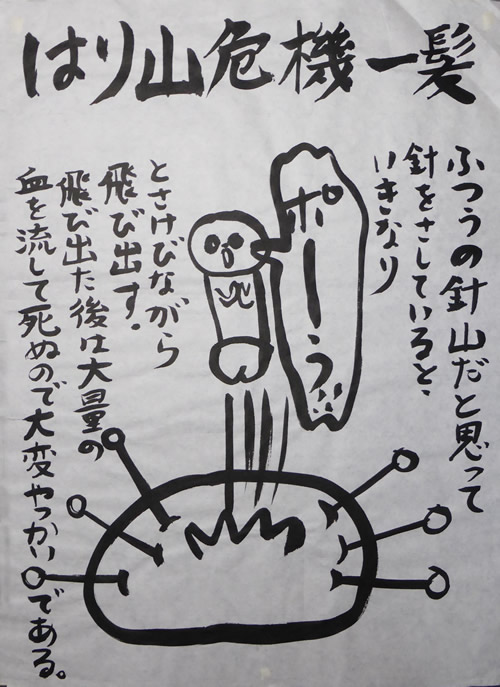 はり山危機一髪
ふつうの針山だと思って
針をさしていると、
いきなり
ポーう!!
とさけびながら
飛び出す.
飛び出た後は大量の
血を流して死ぬので大変やっかいである。